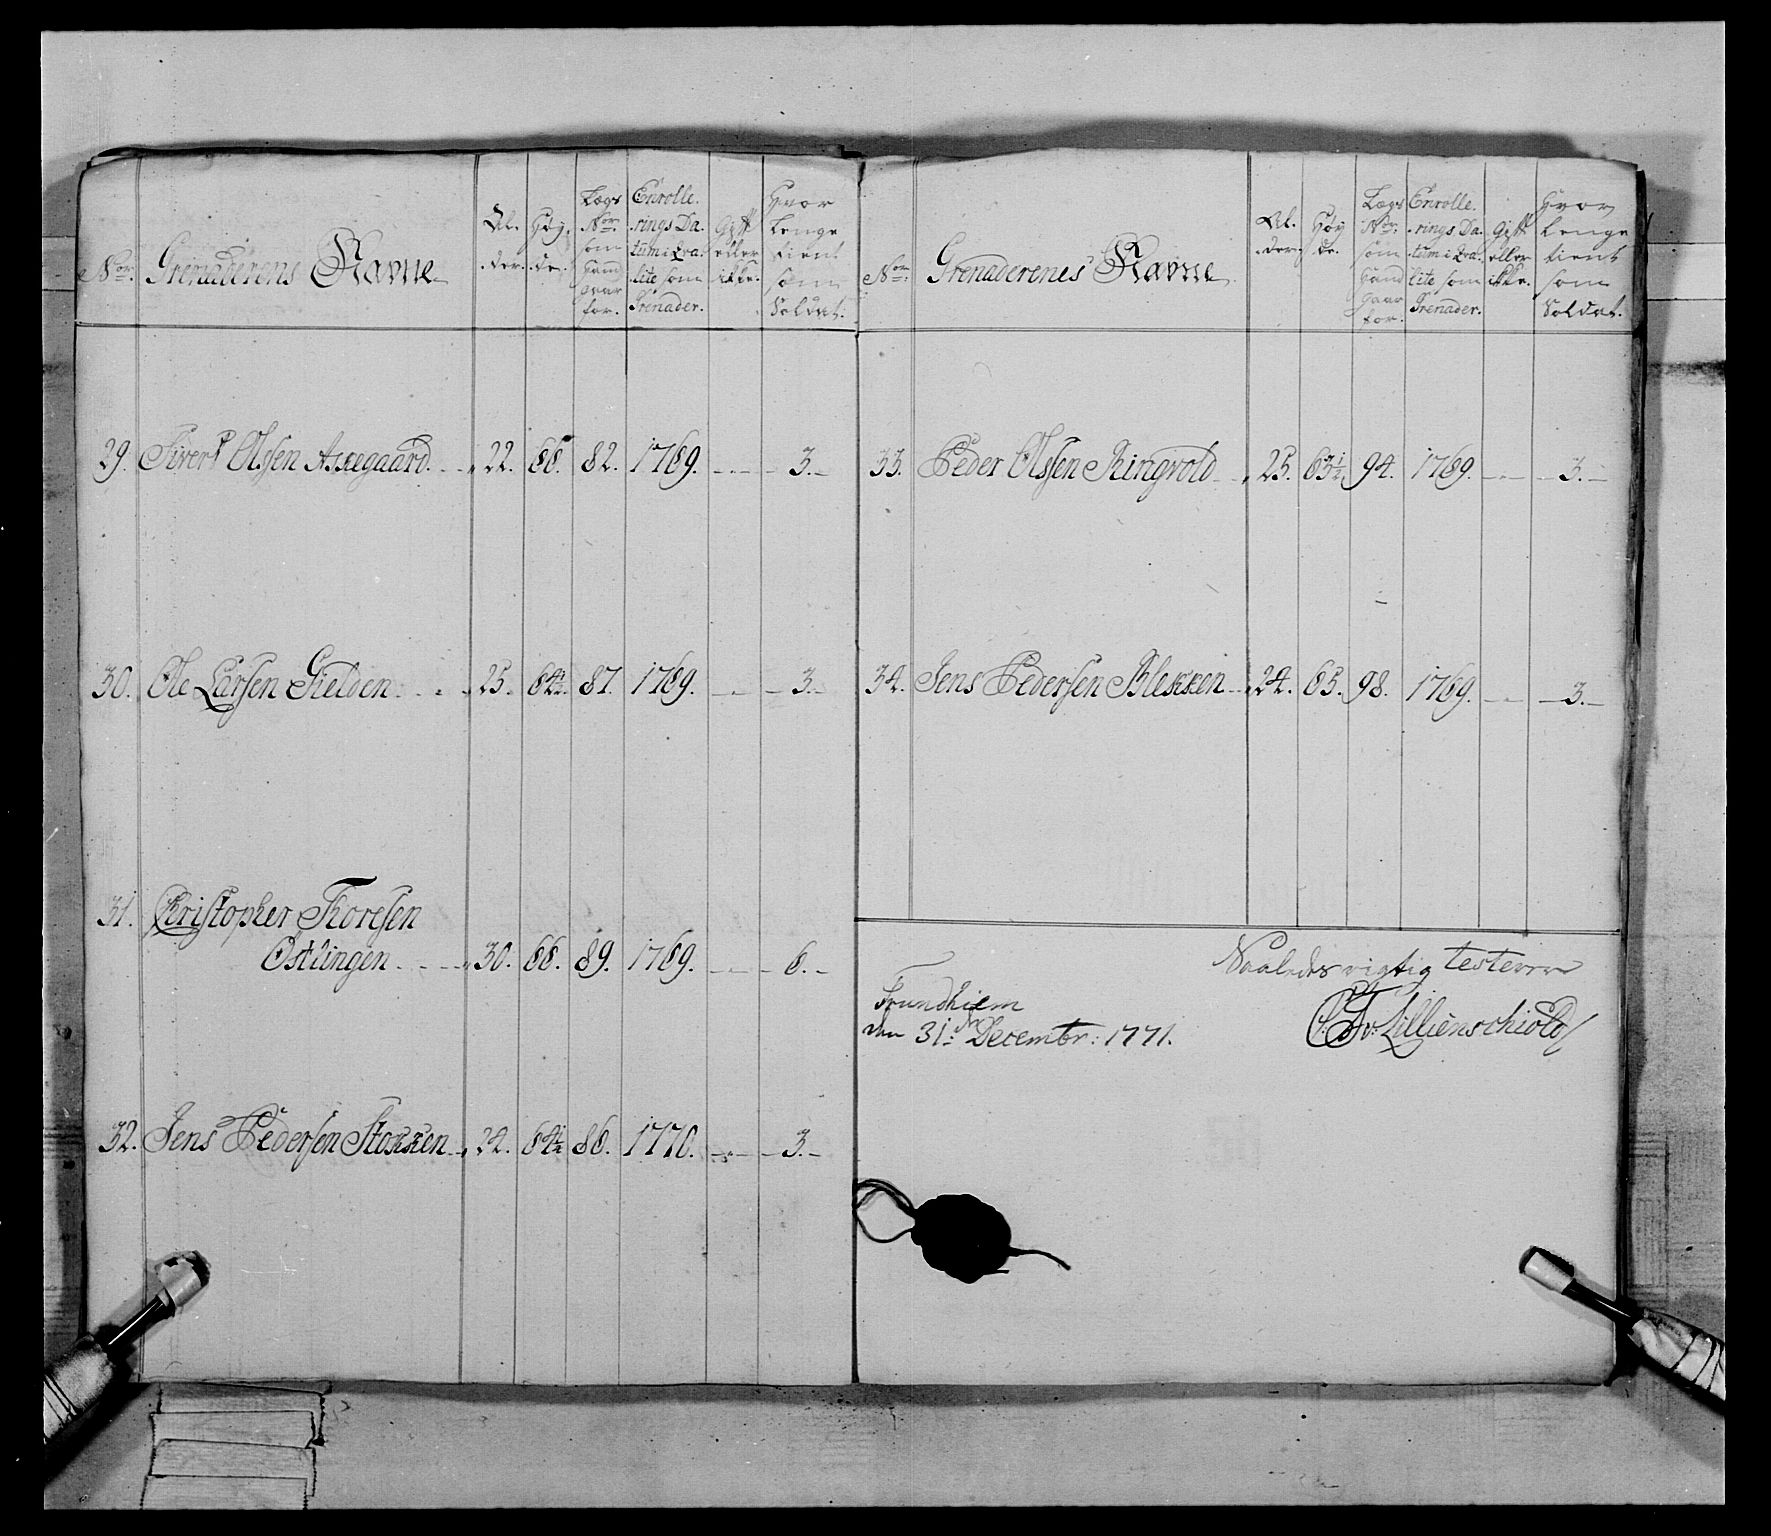 Nor: Grenaderens Navne Al- der. Høy- de. Lægs Nor: som hand gaar for. Enrolle- rings Da- tum i Qva- lite som Grenader. Gift eller ikke. Hvor lenge tient som Soldat.
29. Sivert Olsen Askegaard. 22. 66. 82. 1769. — 3.
30. Ole Larsen Gielden 25. 64½. 87. 1769. — 3.
31. Christopher Thoresen
Østlingen 30. 66. 89. 1769. — 6.
32. Jens Pedersen Stokken 24. 64½ 86. 1770. — 3.
Nor: Grenaderenes Navne Al- der. Høy- de. Lægs Nor: som hand gaar for. Enrolle- rings Da- tum i Qva- lite som Grenader. Gift eller ikke. Hvor lenge tient som Soldat.
33. Peder Olssen Ringvold 25. 63½. 94. 1769. — 3.
34. Jens Pedersen Blekken 24. 65. 98. 1769. — 3.
Saaledes rigtig testerer
Trundhiem
den 31: Decembr: 1771.
v. Lillienschiold